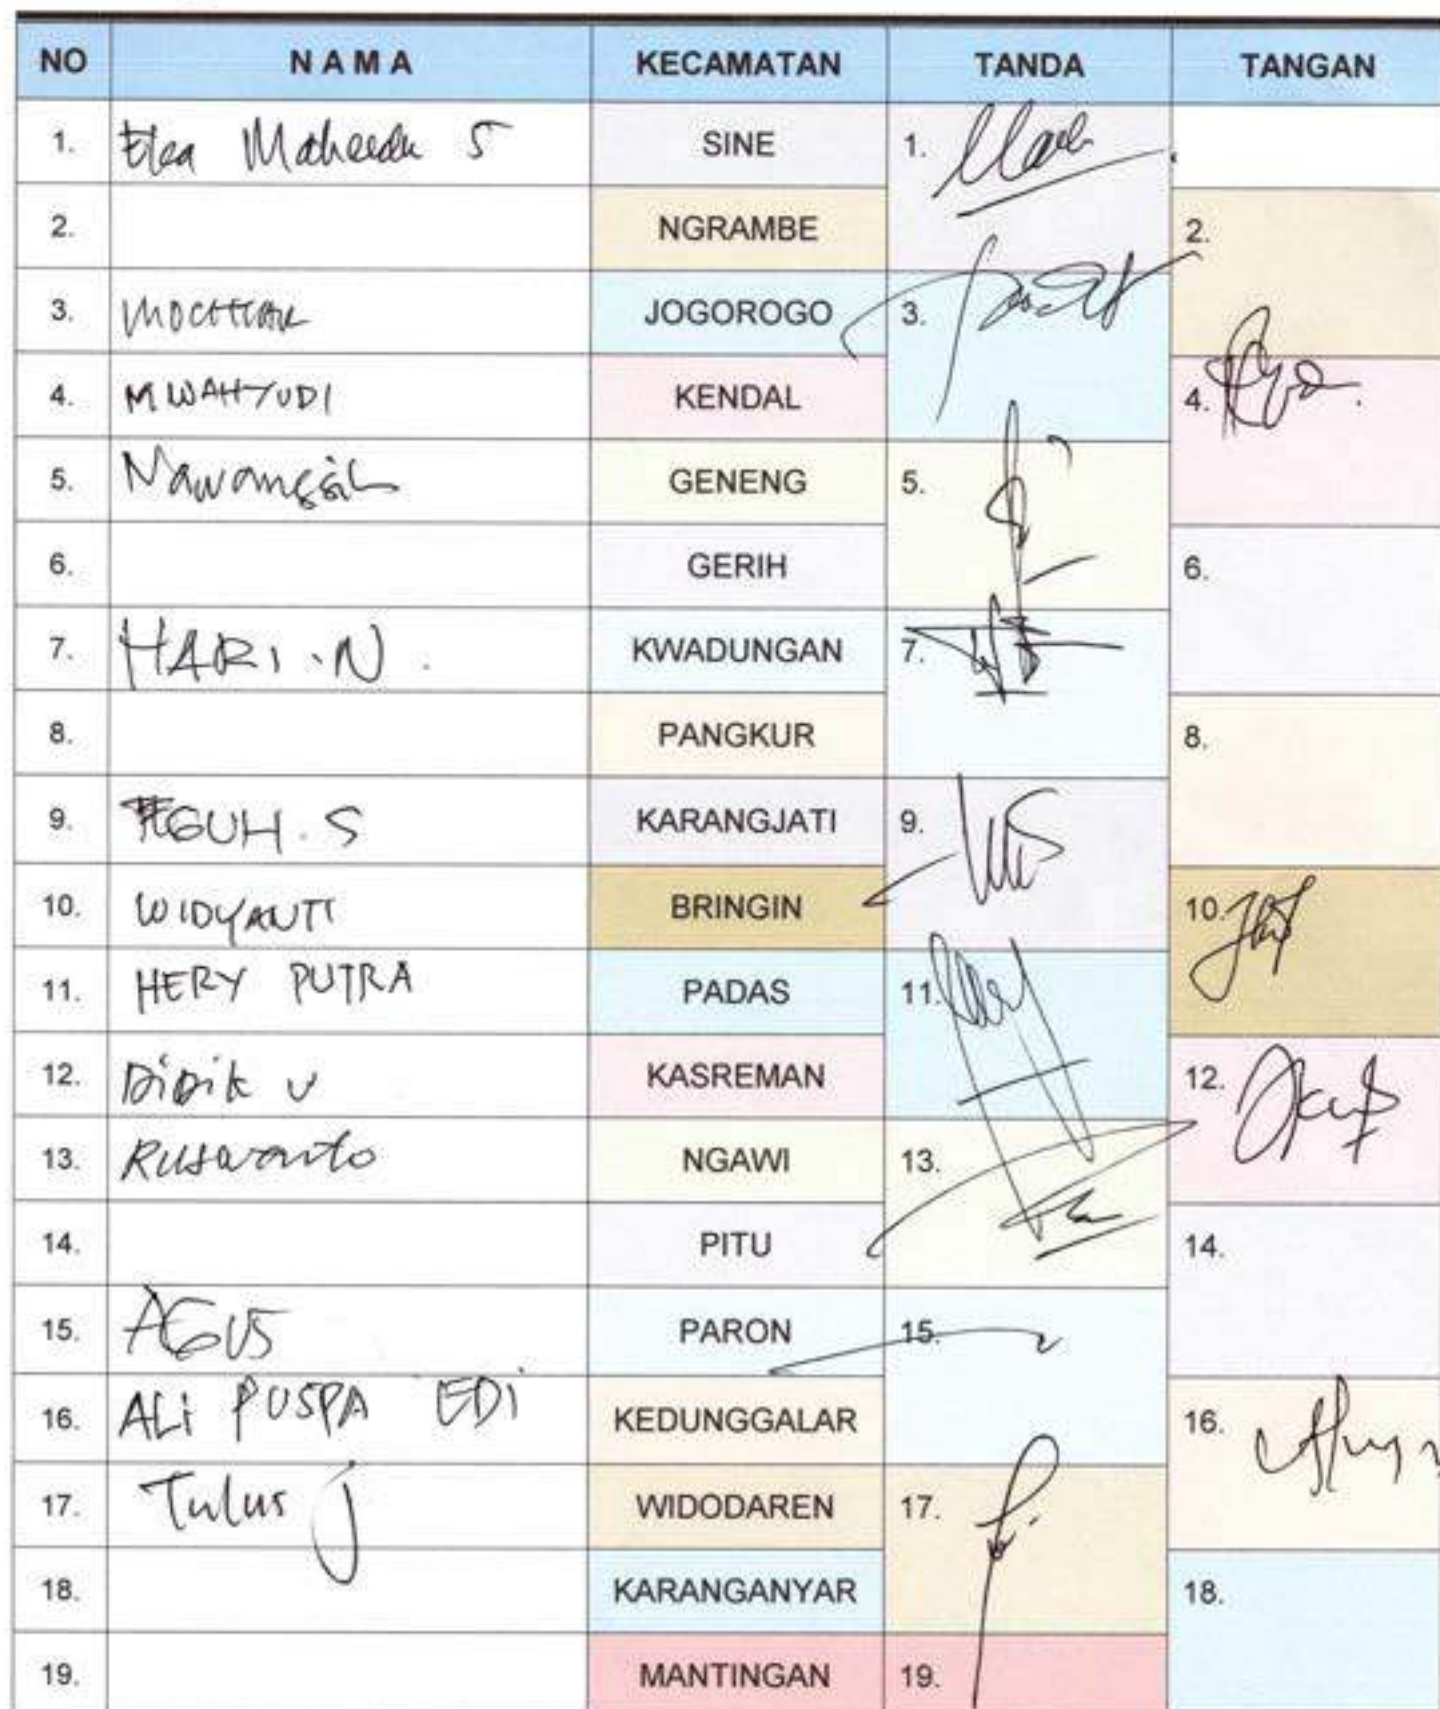 NO NAMA KECAMATAN TANDA TANGAN
1. SINE 1.
2. NGRAMBE 2.
3. JOGOROGO 3.
4. M WAHYUDI KENDAL 4.
5. GENENG 5.
6. GERIH 6.
7. HARI . N . KWADUNGAN 7.
8. PANGKUR 8.
9. TEGUH . S KARANGJATI 9.
10. WIDYANTI BRINGIN 10.
11. HERY PUTRA PADAS 11.
12. Didik v KASREMAN 12.
13. Ruswanto NGAWI 13.
14. PITU 14.
15. AGUS PARON 15.
16. ALi PUSPA EDi KEDUNGGALAR 16.
17. Tulus J WIDODAREN 17.
18. KARANGANYAR 18.
19. MANTINGAN 19.